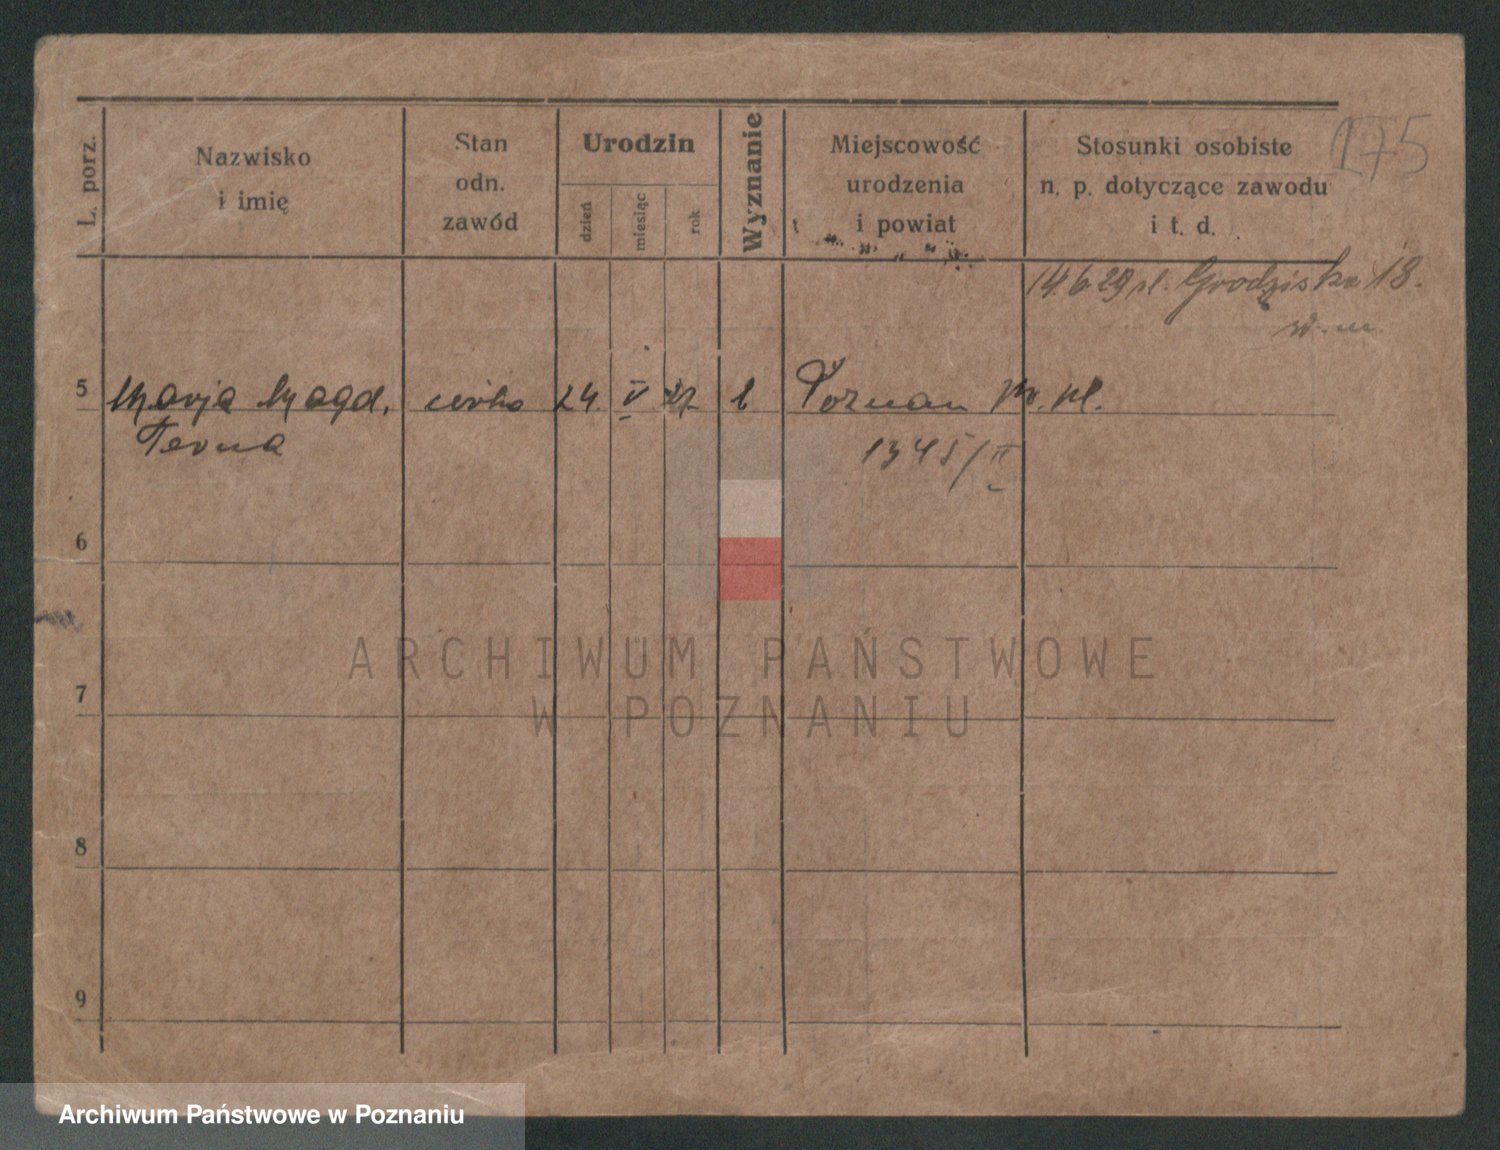 175
L. porz.
Nazwisko
i imię
Stan
odn.
zawód
Urodzin
dzień
miesiąc
rok
Wyznanie
Miejscowość
urodzenia
i powiat
Stosunki osobiste
n. p. dotyczące zawodu
i t. d.
14.6.29 ul. Grodziska 18.
w. m.
5
Marja Magd. córka 24. V 27. k Poznań
1345/II
6
7
8
9
ARCHIWUM PAŃSTWOWE
W POZNANIU
Archiwum Państwowe w Poznaniu